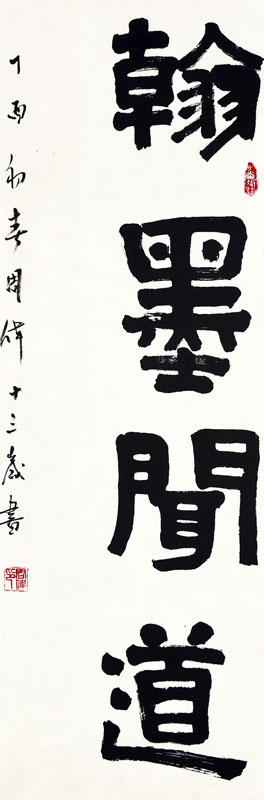 翰墨聞道
丁酉初春周偉十三歲書